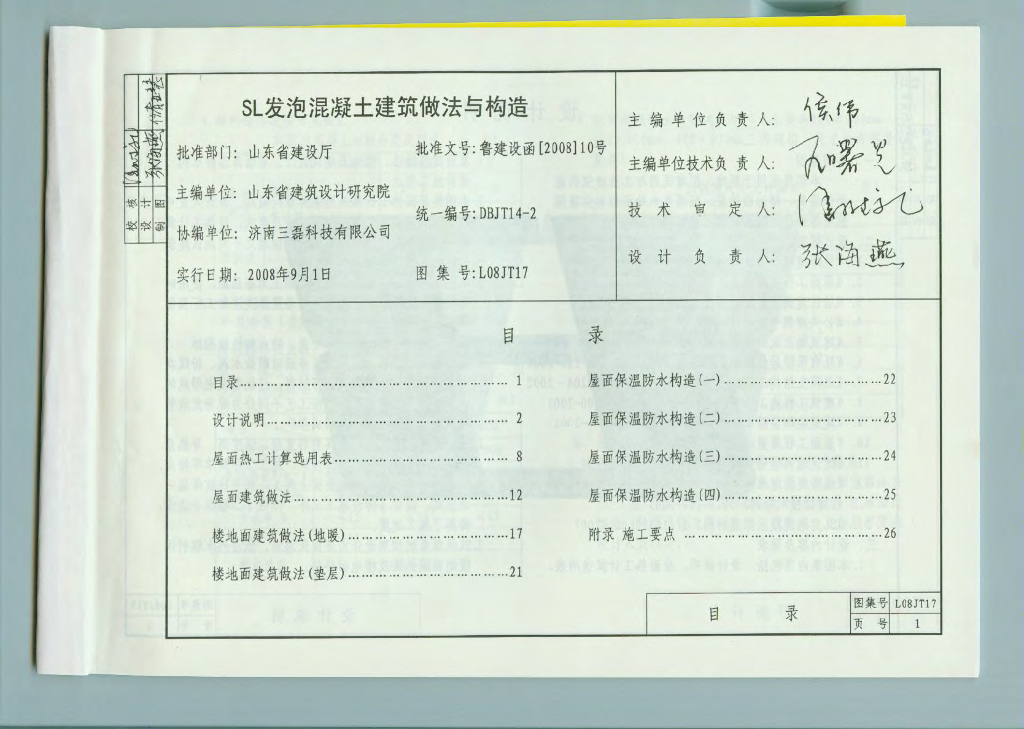 SL发泡混凝土建筑做法与构造
批准部门: 山东省建设厅
批准文号: 鲁建设函[2008]10号
主编单位: 山东省建筑设计研究院
统一编号: DBJT14-2
协编单位: 济南三磊科技有限公司
实行日期: 2008年9月1日
图集号: L08JT17
主编单位负责人: 侯伟
主编单位技术负责人:
技术审定人:
设计负责人: 张海燕
校核
设计
制图
目 录
目录 1
设计说明 2
屋面热工计算选用表 8
屋面建筑做法 12
楼地面建筑做法(地暖) 17
楼地面建筑做法(垫层) 21
屋面保温防水构造(一) 22
屋面保温防水构造(二) 23
屋面保温防水构造(三) 24
屋面保温防水构造(四) 25
附录 施工要点 26
目 录
图集号 L08JT17
页 号 1